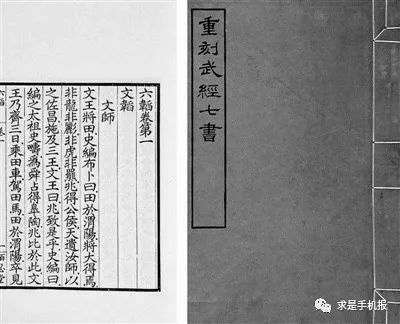 重刻武經七書
六韜卷第一
文韜
文師
文王將田史編布卜曰田於渭陽將大得焉
非龍非彲非虎非羆兆得公侯天遺汝師以
之佐昌施及三王文王曰兆致是乎史編曰
編之太祖史疇爲舜占得皐陶兆比於此文
王乃齋三日乘田車駕田馬田於渭陽卒見
求是手机报